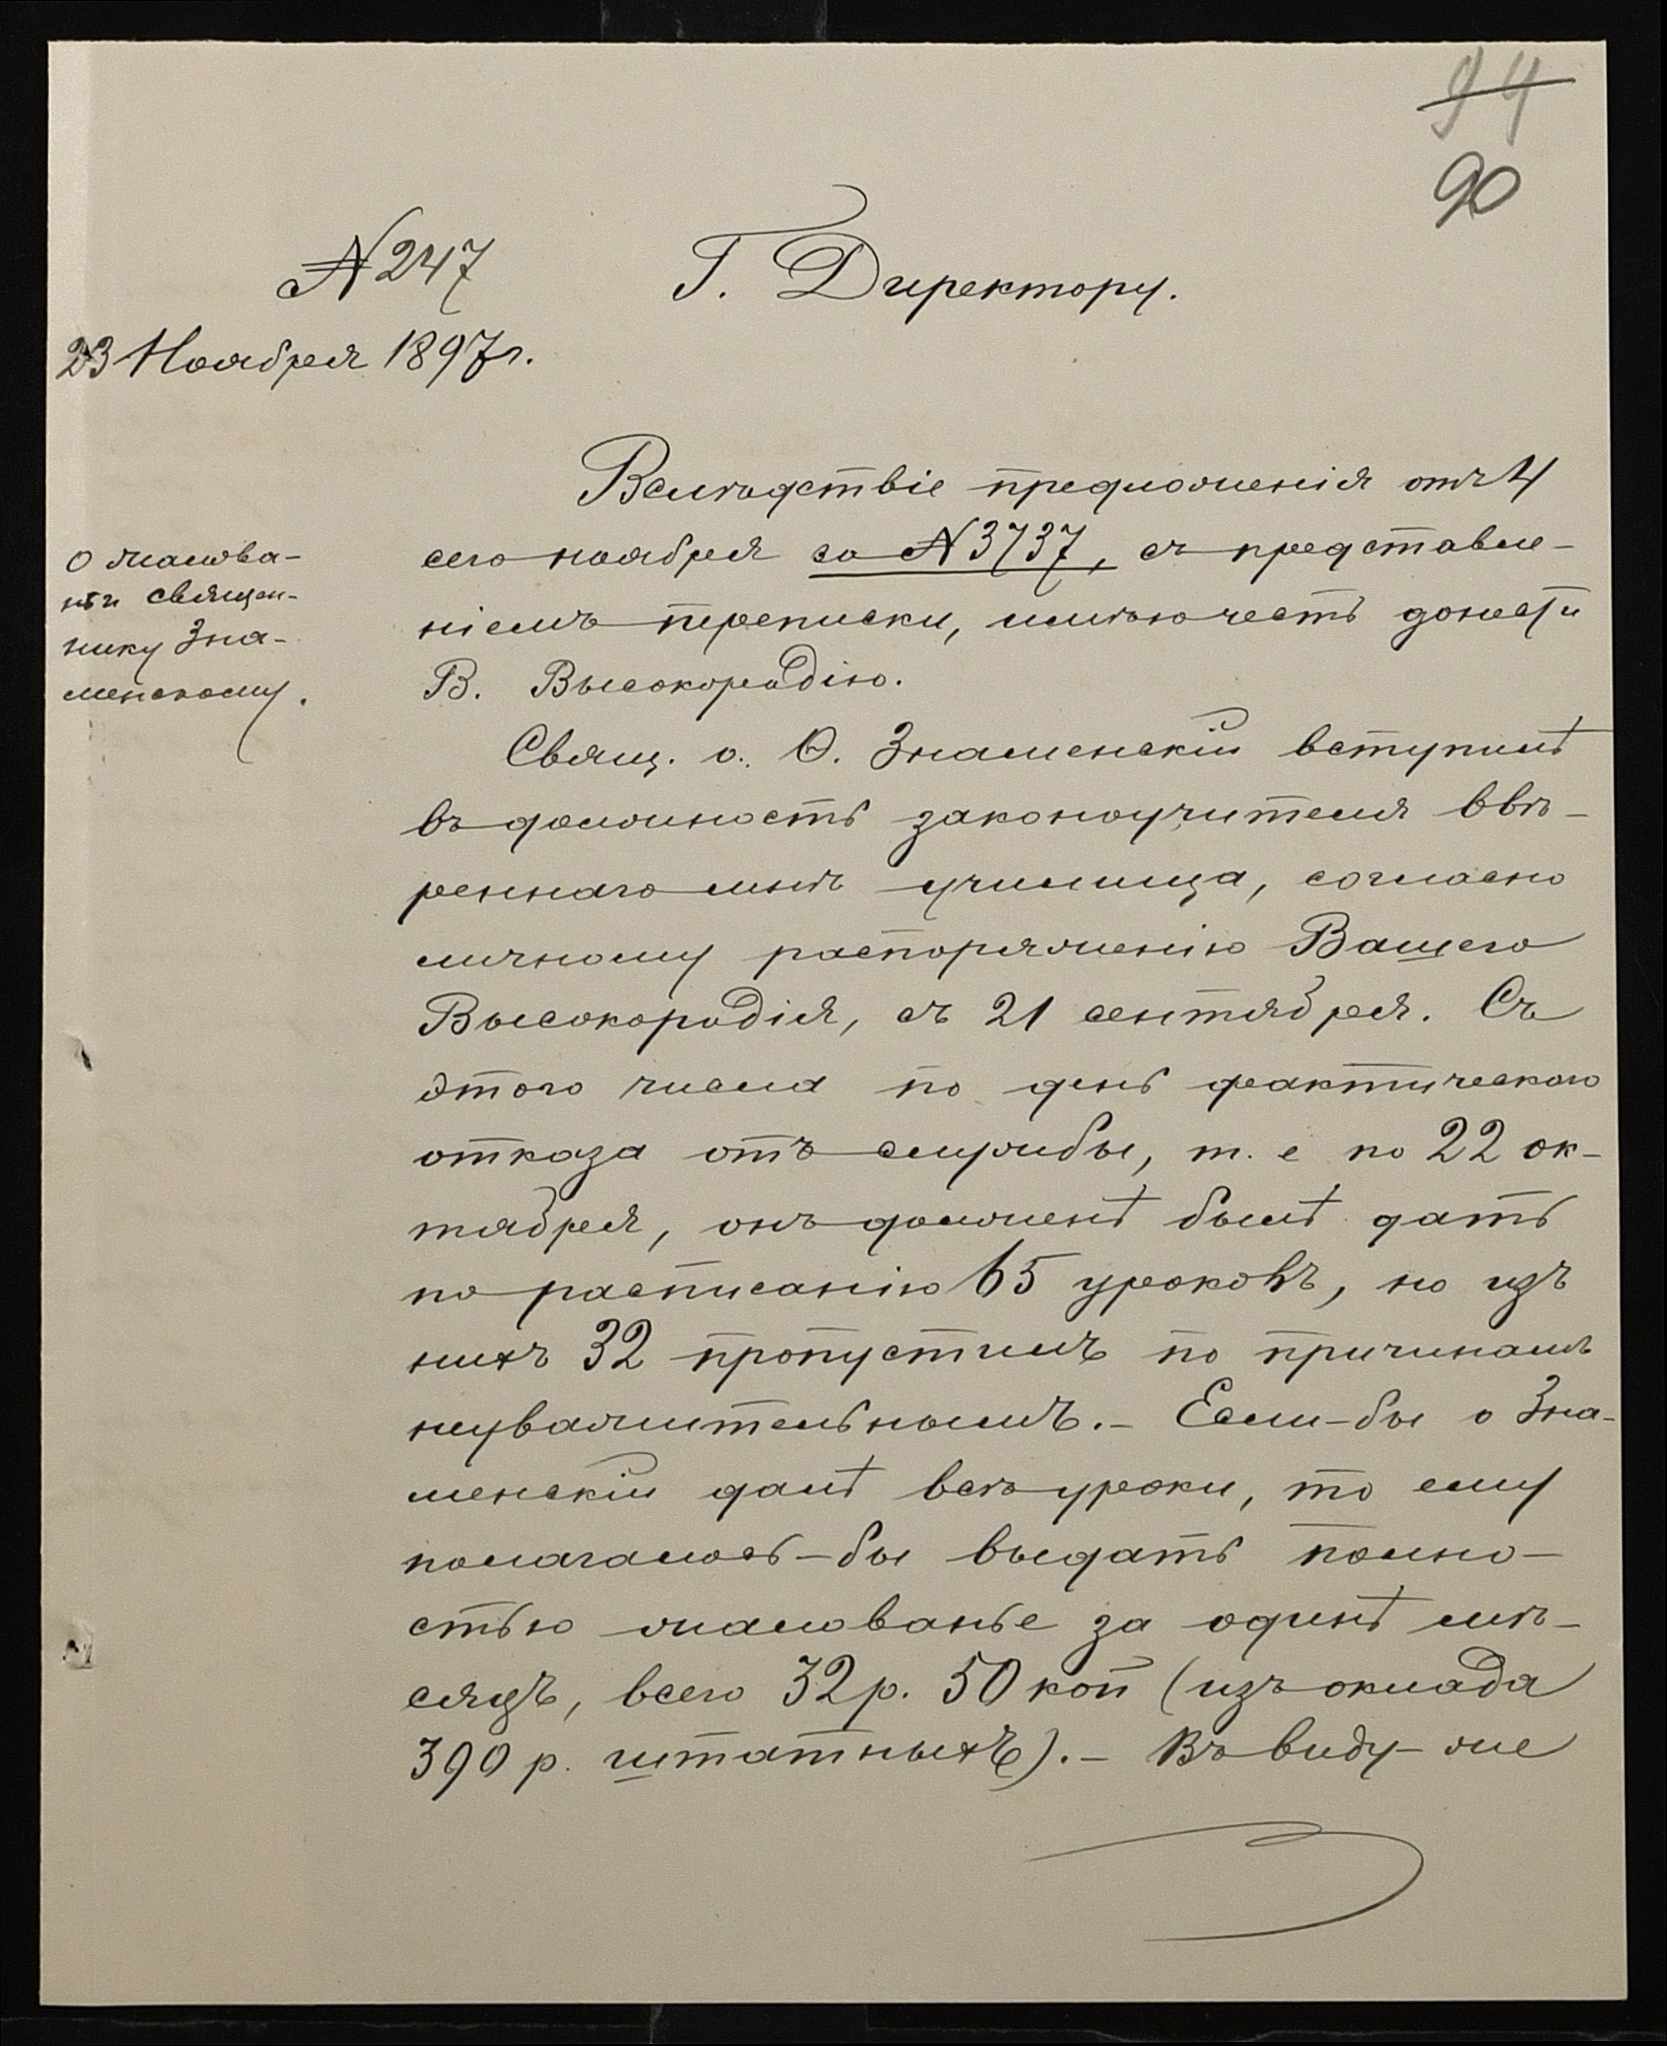 94
90
№ 247
Г. Директору.
23 Ноября 1897 г.
Вслѣдствіе предложенія отъ 4
сего ноября за № 3737, съ представле-
ніемъ переписки, имѣю честь донести
В. Высокородію.
О жалова-
ньи священ-
нику Зна-
менскому.
Свящ. о. Ѳ. Знаменскій вступилъ
въ должность законоучителя ввѣ-
реннаго мнѣ училища, согласно
личному распоряженію Вашего
Высокородія, съ 21 сентября. Съ
этого числа по день фактическаго
отказа отъ службы, т. е по 22 ок-
тября, онъ долженъ былъ дать
по расписанію 65 уроковъ, но изъ
нихъ 32 пропустилъ по причинамъ
неуважительнымъ.- Если-бы о Зна-
менскій далъ всѣ уроки, то ему
полагалось-бы выдать полно-
стью жалованье за одинъ мѣ-
сяцъ, всего 32 р. 50 коп (изъ оклада
390 р. штатныхъ).- Въ виду-же